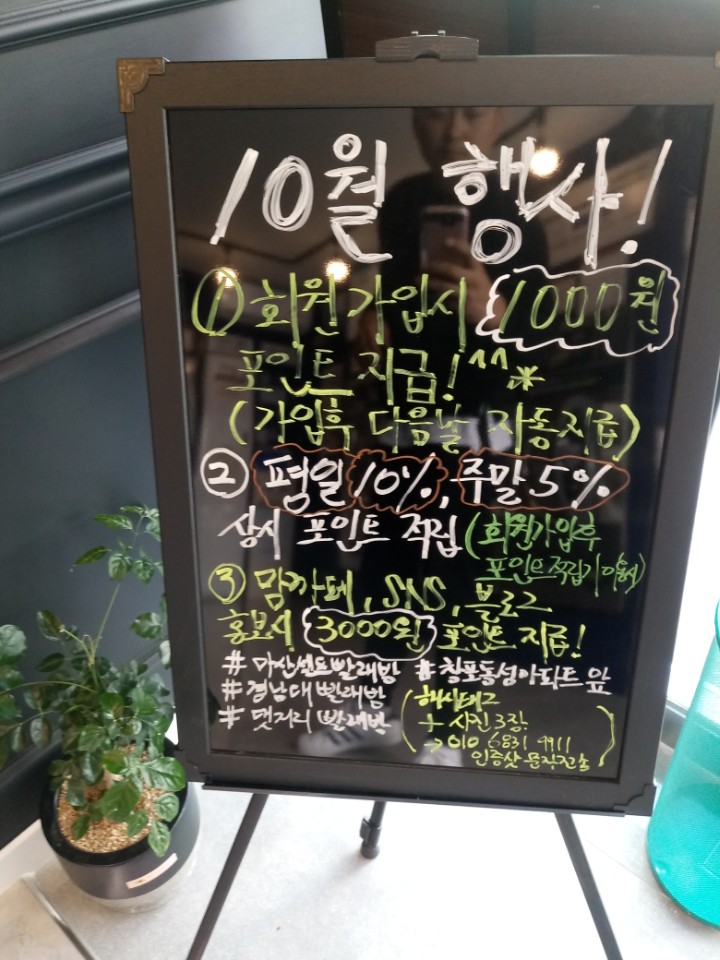 10월 행사!
① 회원가입시 1000원
포인트 지급! ^^*
(가입후 다음날 자동지급)
② 평일 10%, 주말 5%
상시 포인트 적립 (회원가입후
포인트적립기 이용시)
③ 맘까페, SNS, 블로그
홍보시 3000원 포인트 지급!
#마산센트빨래방 #월포동성아파트 앞
#경남대빨래방
#댓거리빨래방
(해시태그
+ 사진 3장
→ 010 6831 4911
인증샷 문자전송)